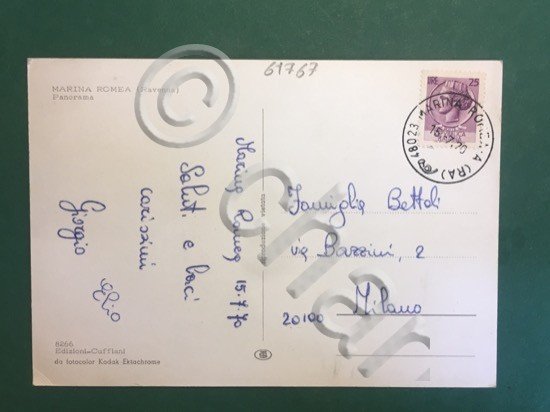 61767
MARINA ROMEA (Ravenna)
Panorama
LIRE 25
48023 MARINA ROMEA (RA)
15.7.70
Marina Romea 15.7.70
Saluti e baci
carissimi
Giorgio
Famiglia Bettoli
via Bazzini, 2
20100 Milano
8266
Edizioni=Cuffiani
da fotocolor Kodak Ektachrome
©